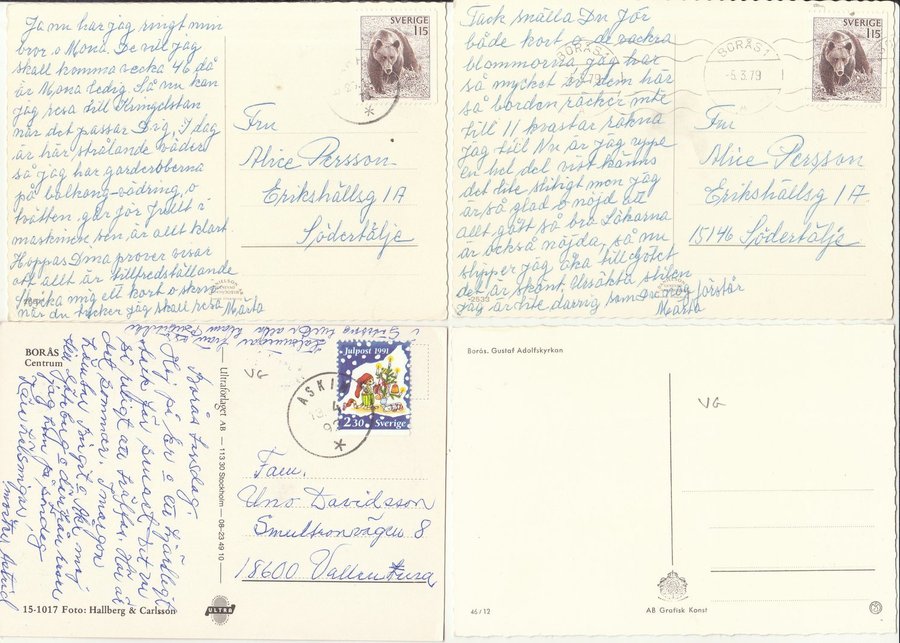 Ja nu har jag ringt min
bror o Mona. De vill jag
skall komma vecka 46 då
är Mona ledig Så nu kan
jag resa till
när det passar Dig, I dag
är här strålande väder
så jag har garderoberna
på balkong-vädring, o
tvätten går för fullt i
maskinen, sen är allt klart
Hoppas Dina prover visar
att allt är tillfredsställande
Skicka mig ett kort o skriv
när du tycker jag skall resa Märta
SVERIGE
115
Fru
Alice Persson
Erikshällsg 1A
Södertälje
Tack snälla Du för
både kort o de vackra
blommorna jag har
så mycket av dem här
så borden räcker inte
till 11 kvastar räkna
jag till Nu är jag uppe
en hel del visst känns
det lite stelt men jag
är så glad o nöjd att
allt gått så bra Läkarna
är också nöjda, så nu
slipper jag öka till golvet
det är skönt Ursäkta stilen
jag är lite darrig som Du nog förstår
Märta
2533
BORÅS 1
-5.3.79
SVERIGE
115
Fru
Alice Persson
Erikshällsg 1A
15146 Södertälje
BORÅS
Centrum
Borås Lysdag.
Hej på Er o ett hjärtligt
tack för senast det var
så roligt att träffas. Här är
det sommar. I morgon
kommer Birgit o Åke med
till Göteborg o därifrån reser
jag hem på söndag
Hälsningar,
moster Astrid
15-1017 Foto: Hallberg & Carlsson
Ultraförlaget AB — 113 30 Stockholm — 08-23 49 10
ULTRA
VG
ASKIM
Julpost 1991
2.30 Sverige
Fam.
Uno Davidsson
Smultronvägen 8
18600 Vallentuna
Borås. Gustaf Adolfskyrkan
VG
46/12
AB Grafisk Konst